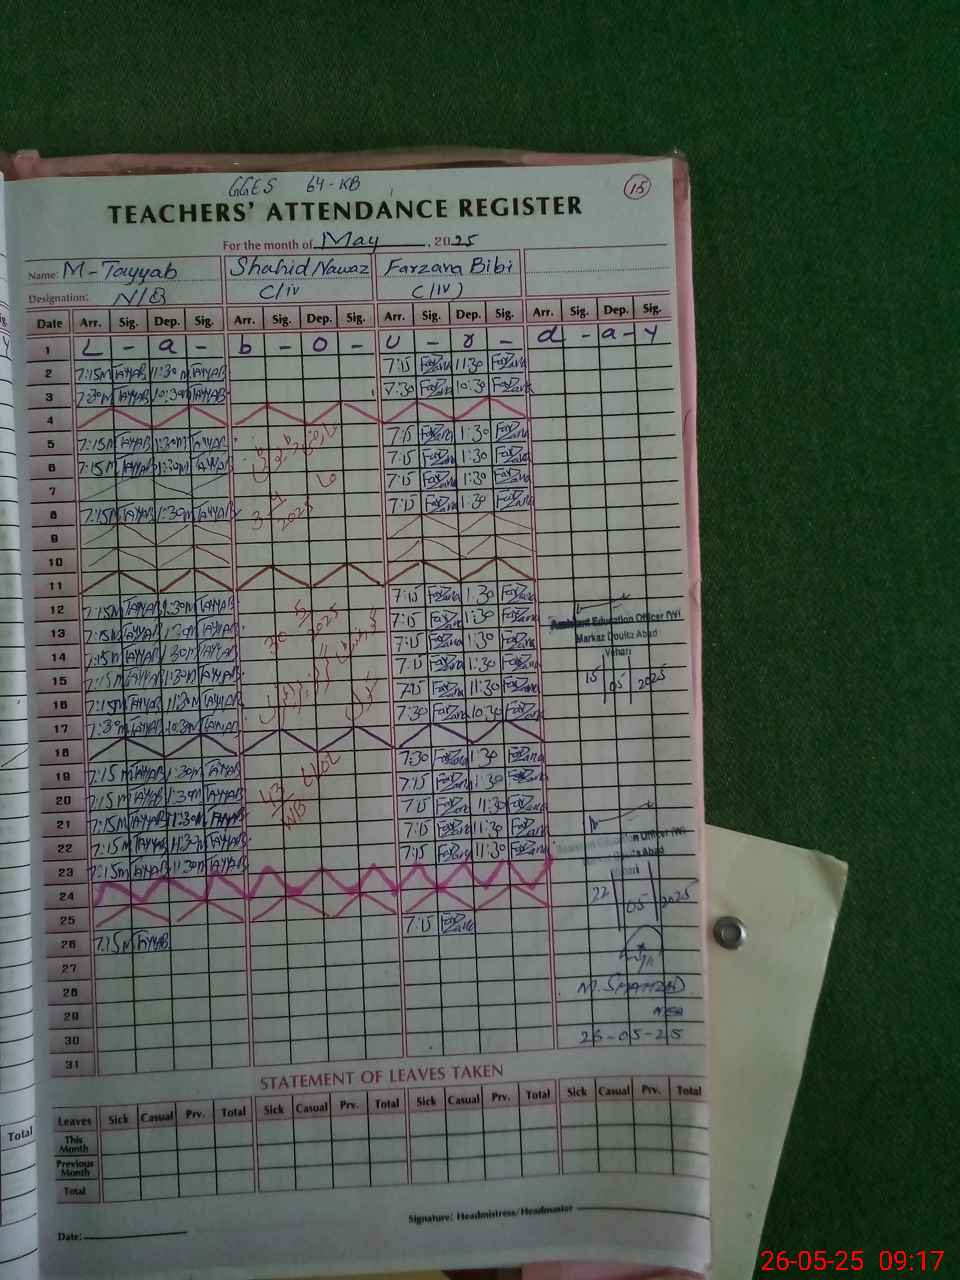 GGES 64-KB
15
TEACHERS' ATTENDANCE REGISTER
For the month of May, 2025
Name: M-Tayyab Shahid Nawaz Farzana Bibi
Designation: N/Q C/iv C/IV)
Date Arr. Sig. Dep. Sig. Arr. Sig. Dep. Sig. Arr. Sig. Dep. Sig. Arr. Sig. Dep. Sig.
1 L - a - b - o - u - r - d - a - y
2 7:15 TAYYAB 11:30 TAYYAB 7:15 Farzana 11:30 Farzana
3 7:30 TAYYAB 10:30 TAYYAB 7:30 Farzana 10:30 Farzana
4
5 7:15 TAYYAB 1:30 TAYYAB 7:15 Farzana 1:30 Farzana
6 7:15 TAYYAB 1:30 TAYYAB 7:15 Farzana 1:30 Farzana
7 7:15 Farzana 1:30 Farzana
8 7:15 TAYYAB 1:30 TAYYAB 7:15 Farzana 1:30 Farzana
2025
9
10
11
12 7:15 TAYYAB 1:30 TAYYAB 7:15 Farzana 1:30 Farzana
13 7:15 TAYYAB 1:30 TAYYAB 7:15 Farzana 1:30 Farzana
30 5 2025
Assistant Education Officer (W)
Markaz Doulta Abad
Vehari
14 7:15 TAYYAB 1:30 TAYYAB 7:15 Farzana 1:30 Farzana
15 7:15 TAYYAB 1:30 TAYYAB 7:15 Farzana 1:30 Farzana
15 05 2025
16 7:15 TAYYAB 11:30 TAYYAB 7:15 Farzana 11:30 Farzana
17 7:30 TAYYAB 10:30 TAYYAB 7:30 Farzana 10:30 Farzana
18
19 7:15 TAYYAB 1:30 TAYYAB 7:30 Farzana 1:30 Farzana
20 7:15 TAYYAB 1:30 TAYYAB 7:15 Farzana 1:30 Farzana
43 WB
21 7:15 TAYYAB 11:30 TAYYAB 7:15 Farzana 11:30 Farzana
22 7:15 TAYYAB 11:30 TAYYAB 7:15 Farzana 11:30 Farzana
23 7:15 TAYYAB 11:30 TAYYAB 7:15 Farzana 11:30 Farzana
Assistant Education Officer (W)
Markaz Doulta Abad
Vehari
24
22 05 2025
25
26 7:15 TAYYAB 7:15 Farzana
27
28
M. SHAHZAD
29
30
26-05-25
31
STATEMENT OF LEAVES TAKEN
Leaves Sick Casual Prv. Total Sick Casual Prv. Total Sick Casual Prv. Total Sick Casual Prv. Total
This Month
Previous Month
Total
Signature: Headmistress/Headmaster
Date:
Total
26-05-25 09:17